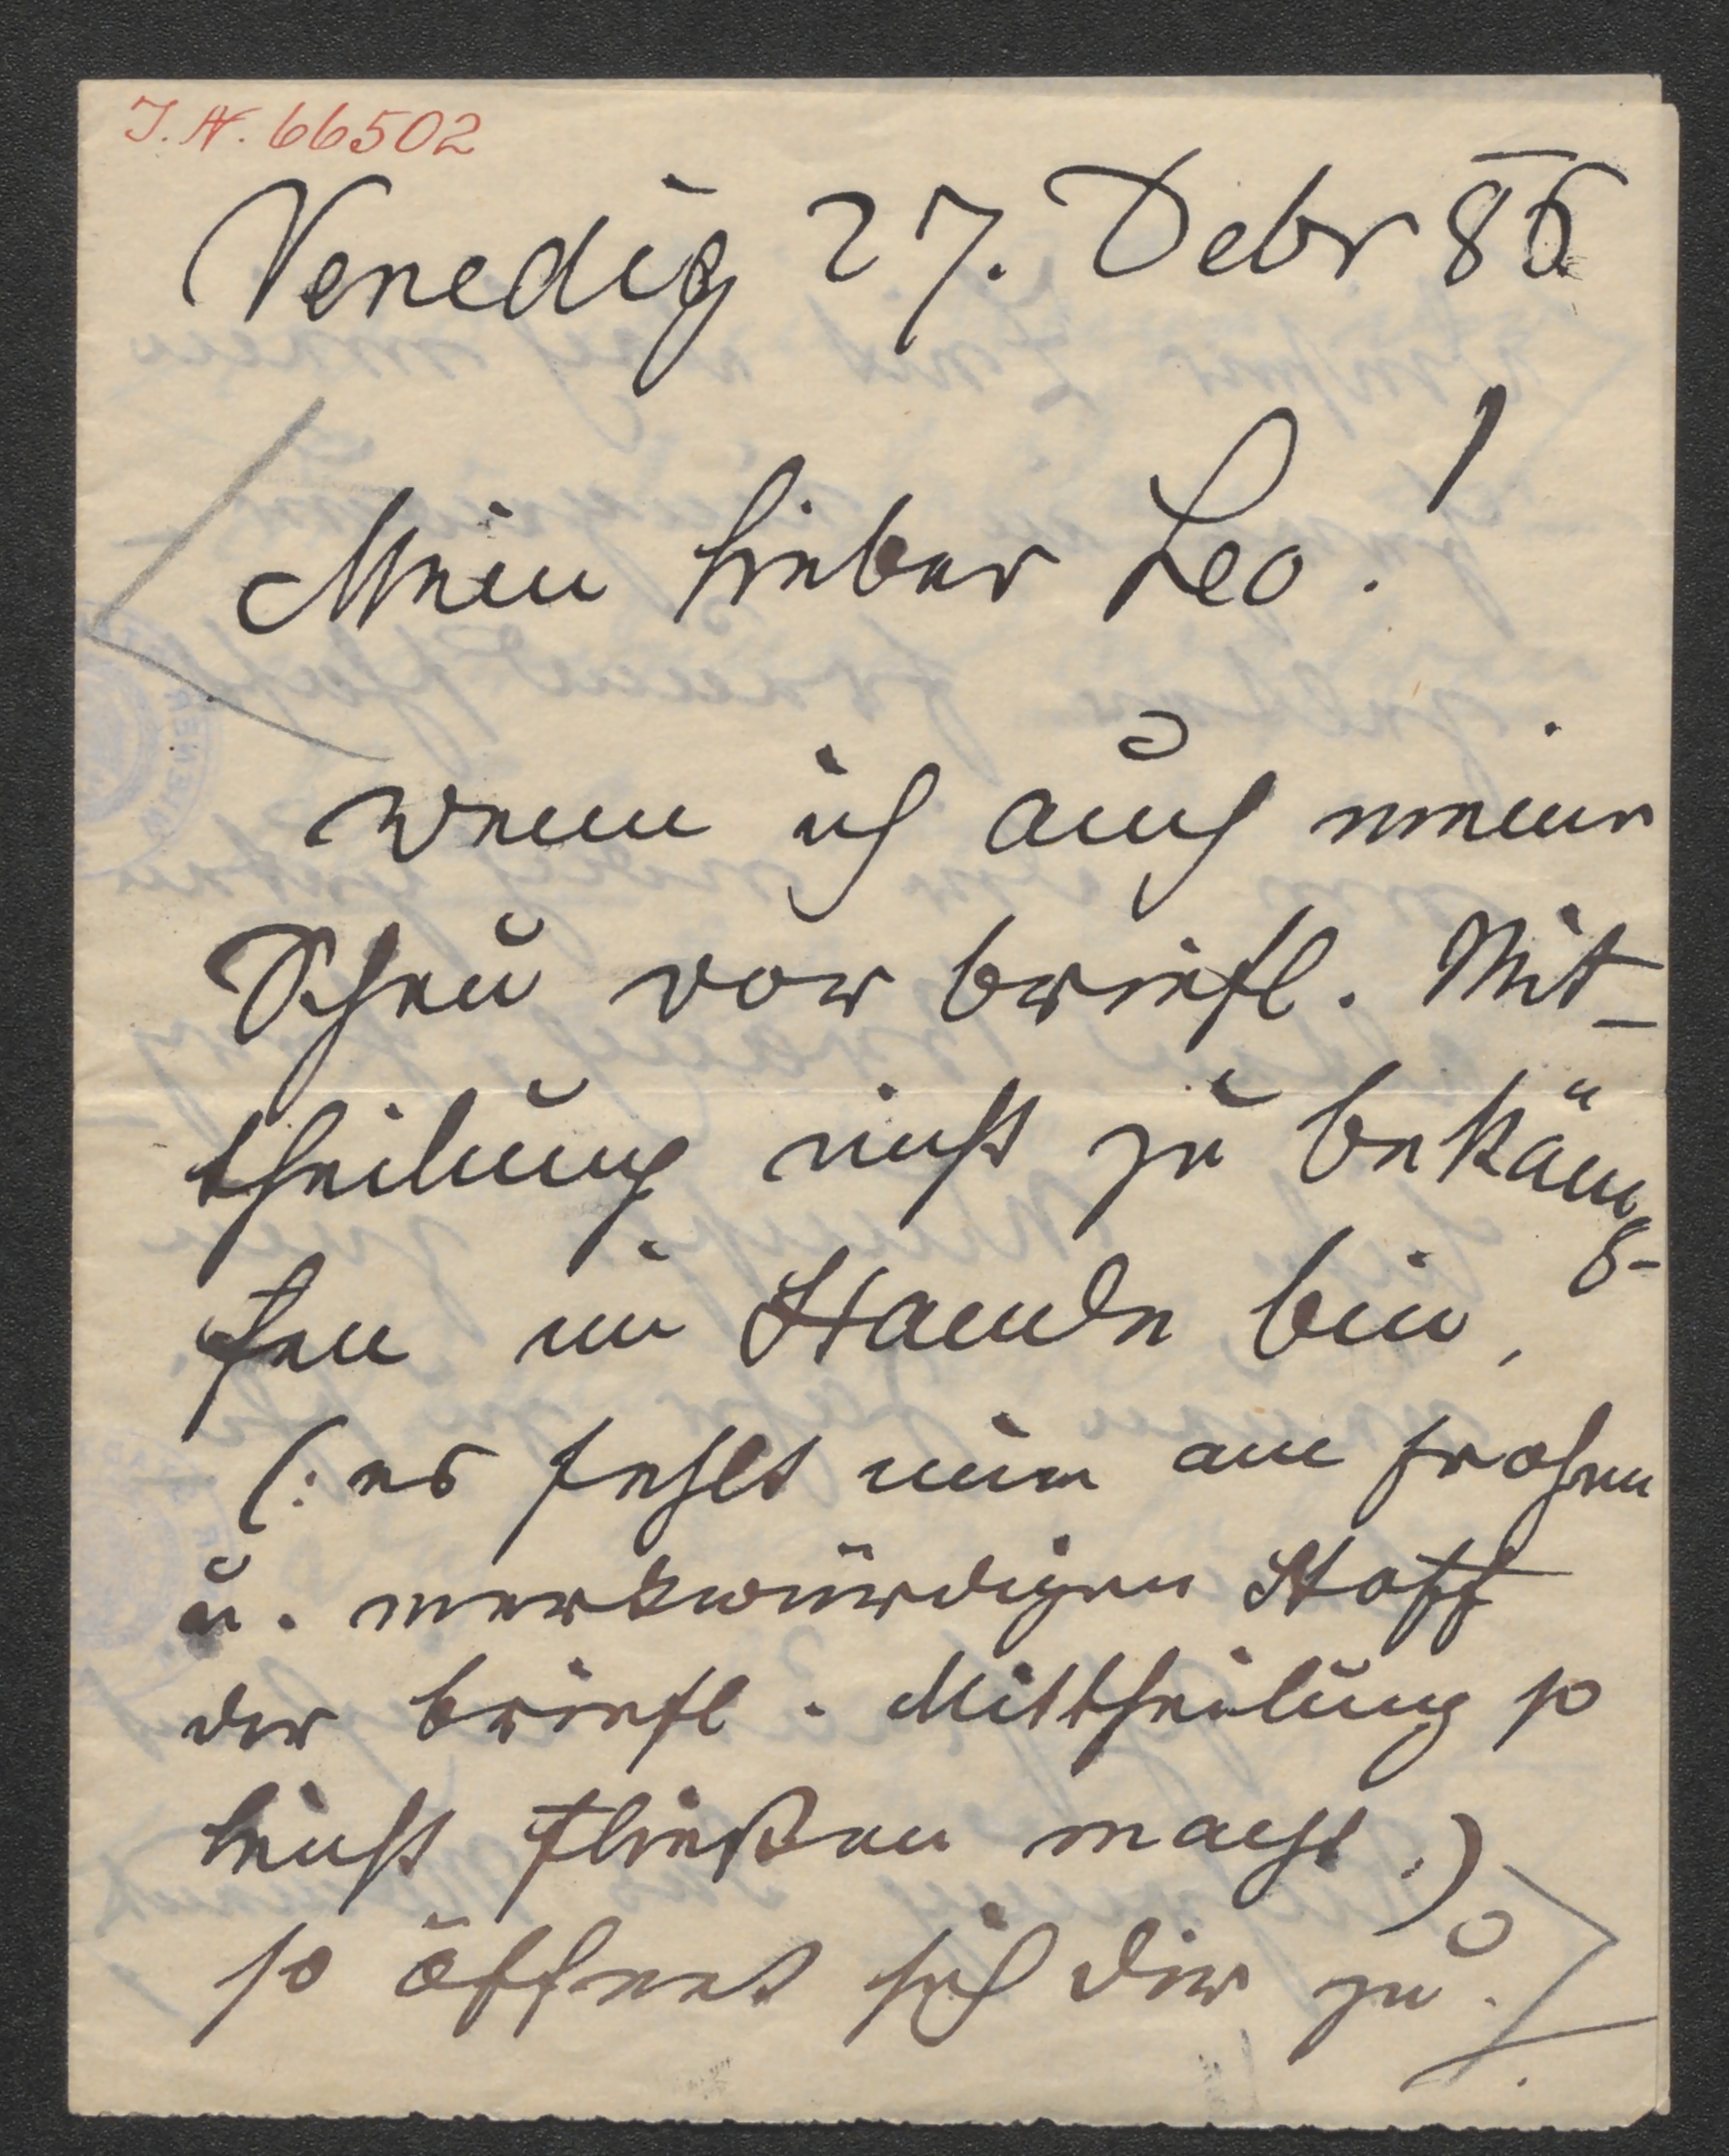 I.N. 66502
Venedig 27. Debr 86
Mein lieber Leo!
wenn ich auch meine
Scheu vor briefl. Mit-
theilung nicht zu bekäm
p-
fen im Stande bin,
(: es fehlt mir am frohen
u. merkwürdigen Stoff
der briefl. Mittheilung so
leicht fließen macht.)
so öffnet sich dir zu.